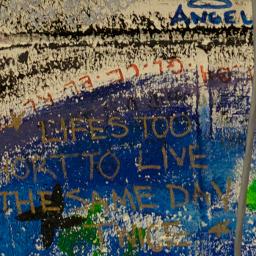 ANGEL
LIFES TOO
SHORT TO LIVE
THE SAME DAY
TWICE